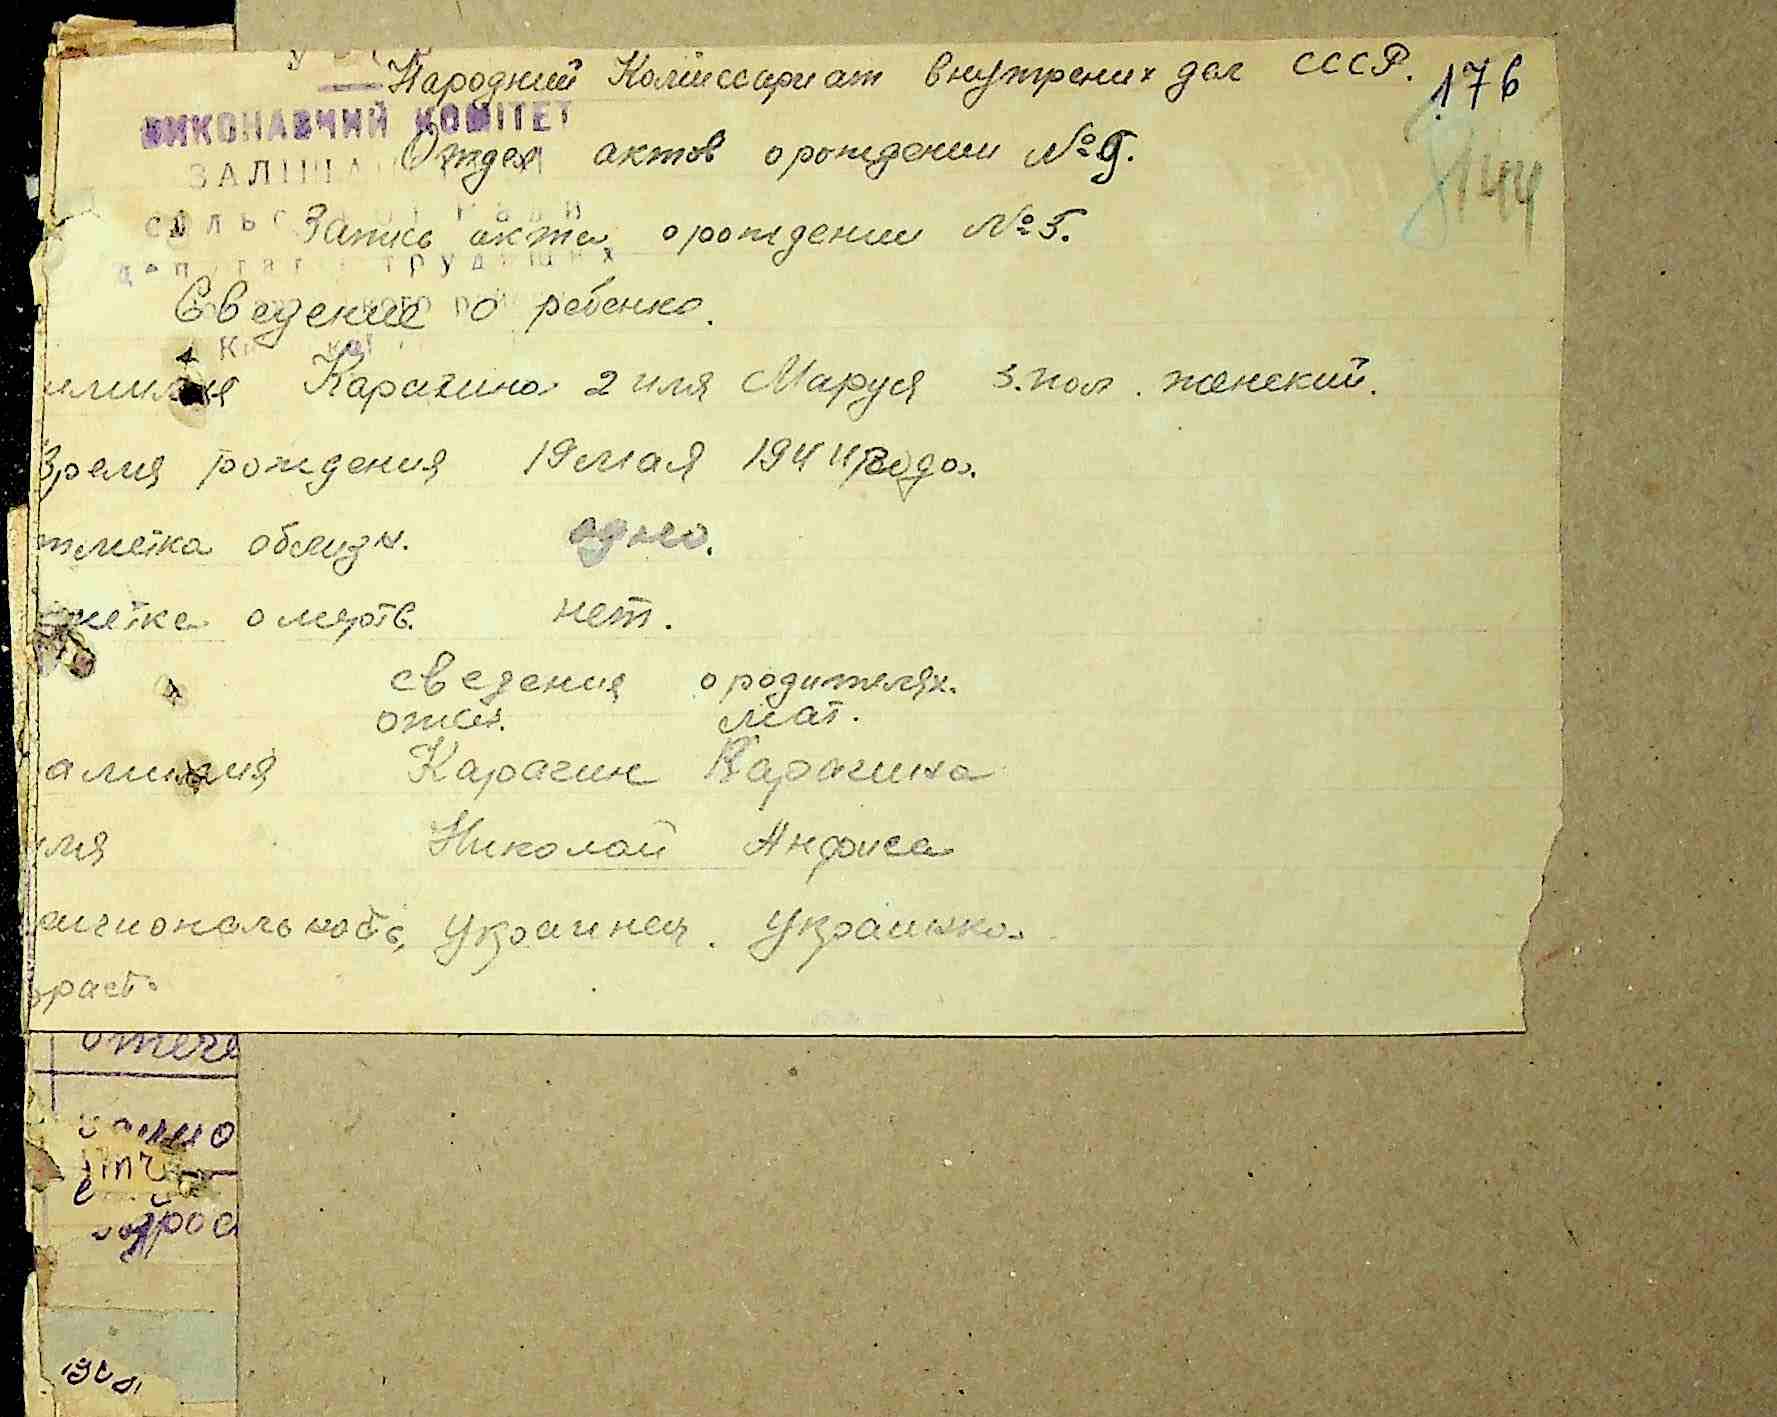 Народний Комиссариат внутрених дел СССР.
176
144
ВИКОНАВЧИЙ КОМІТЕТ
Отдел актов о рождении №5.
Запись акта о рождении №5.
Сведение о ребенке.
амилия Карагина 2 имя Маруся 3. пол. женский.
Время рождения 19 мая 1944 года.
тметка о близн. одно.
метка о мертв. нет.
сведения о родителях.
отец. мат.
амилия Карагин Карагина
имя Николай Анфиса
ациональность, украинец. украинка.
зраст.
отече